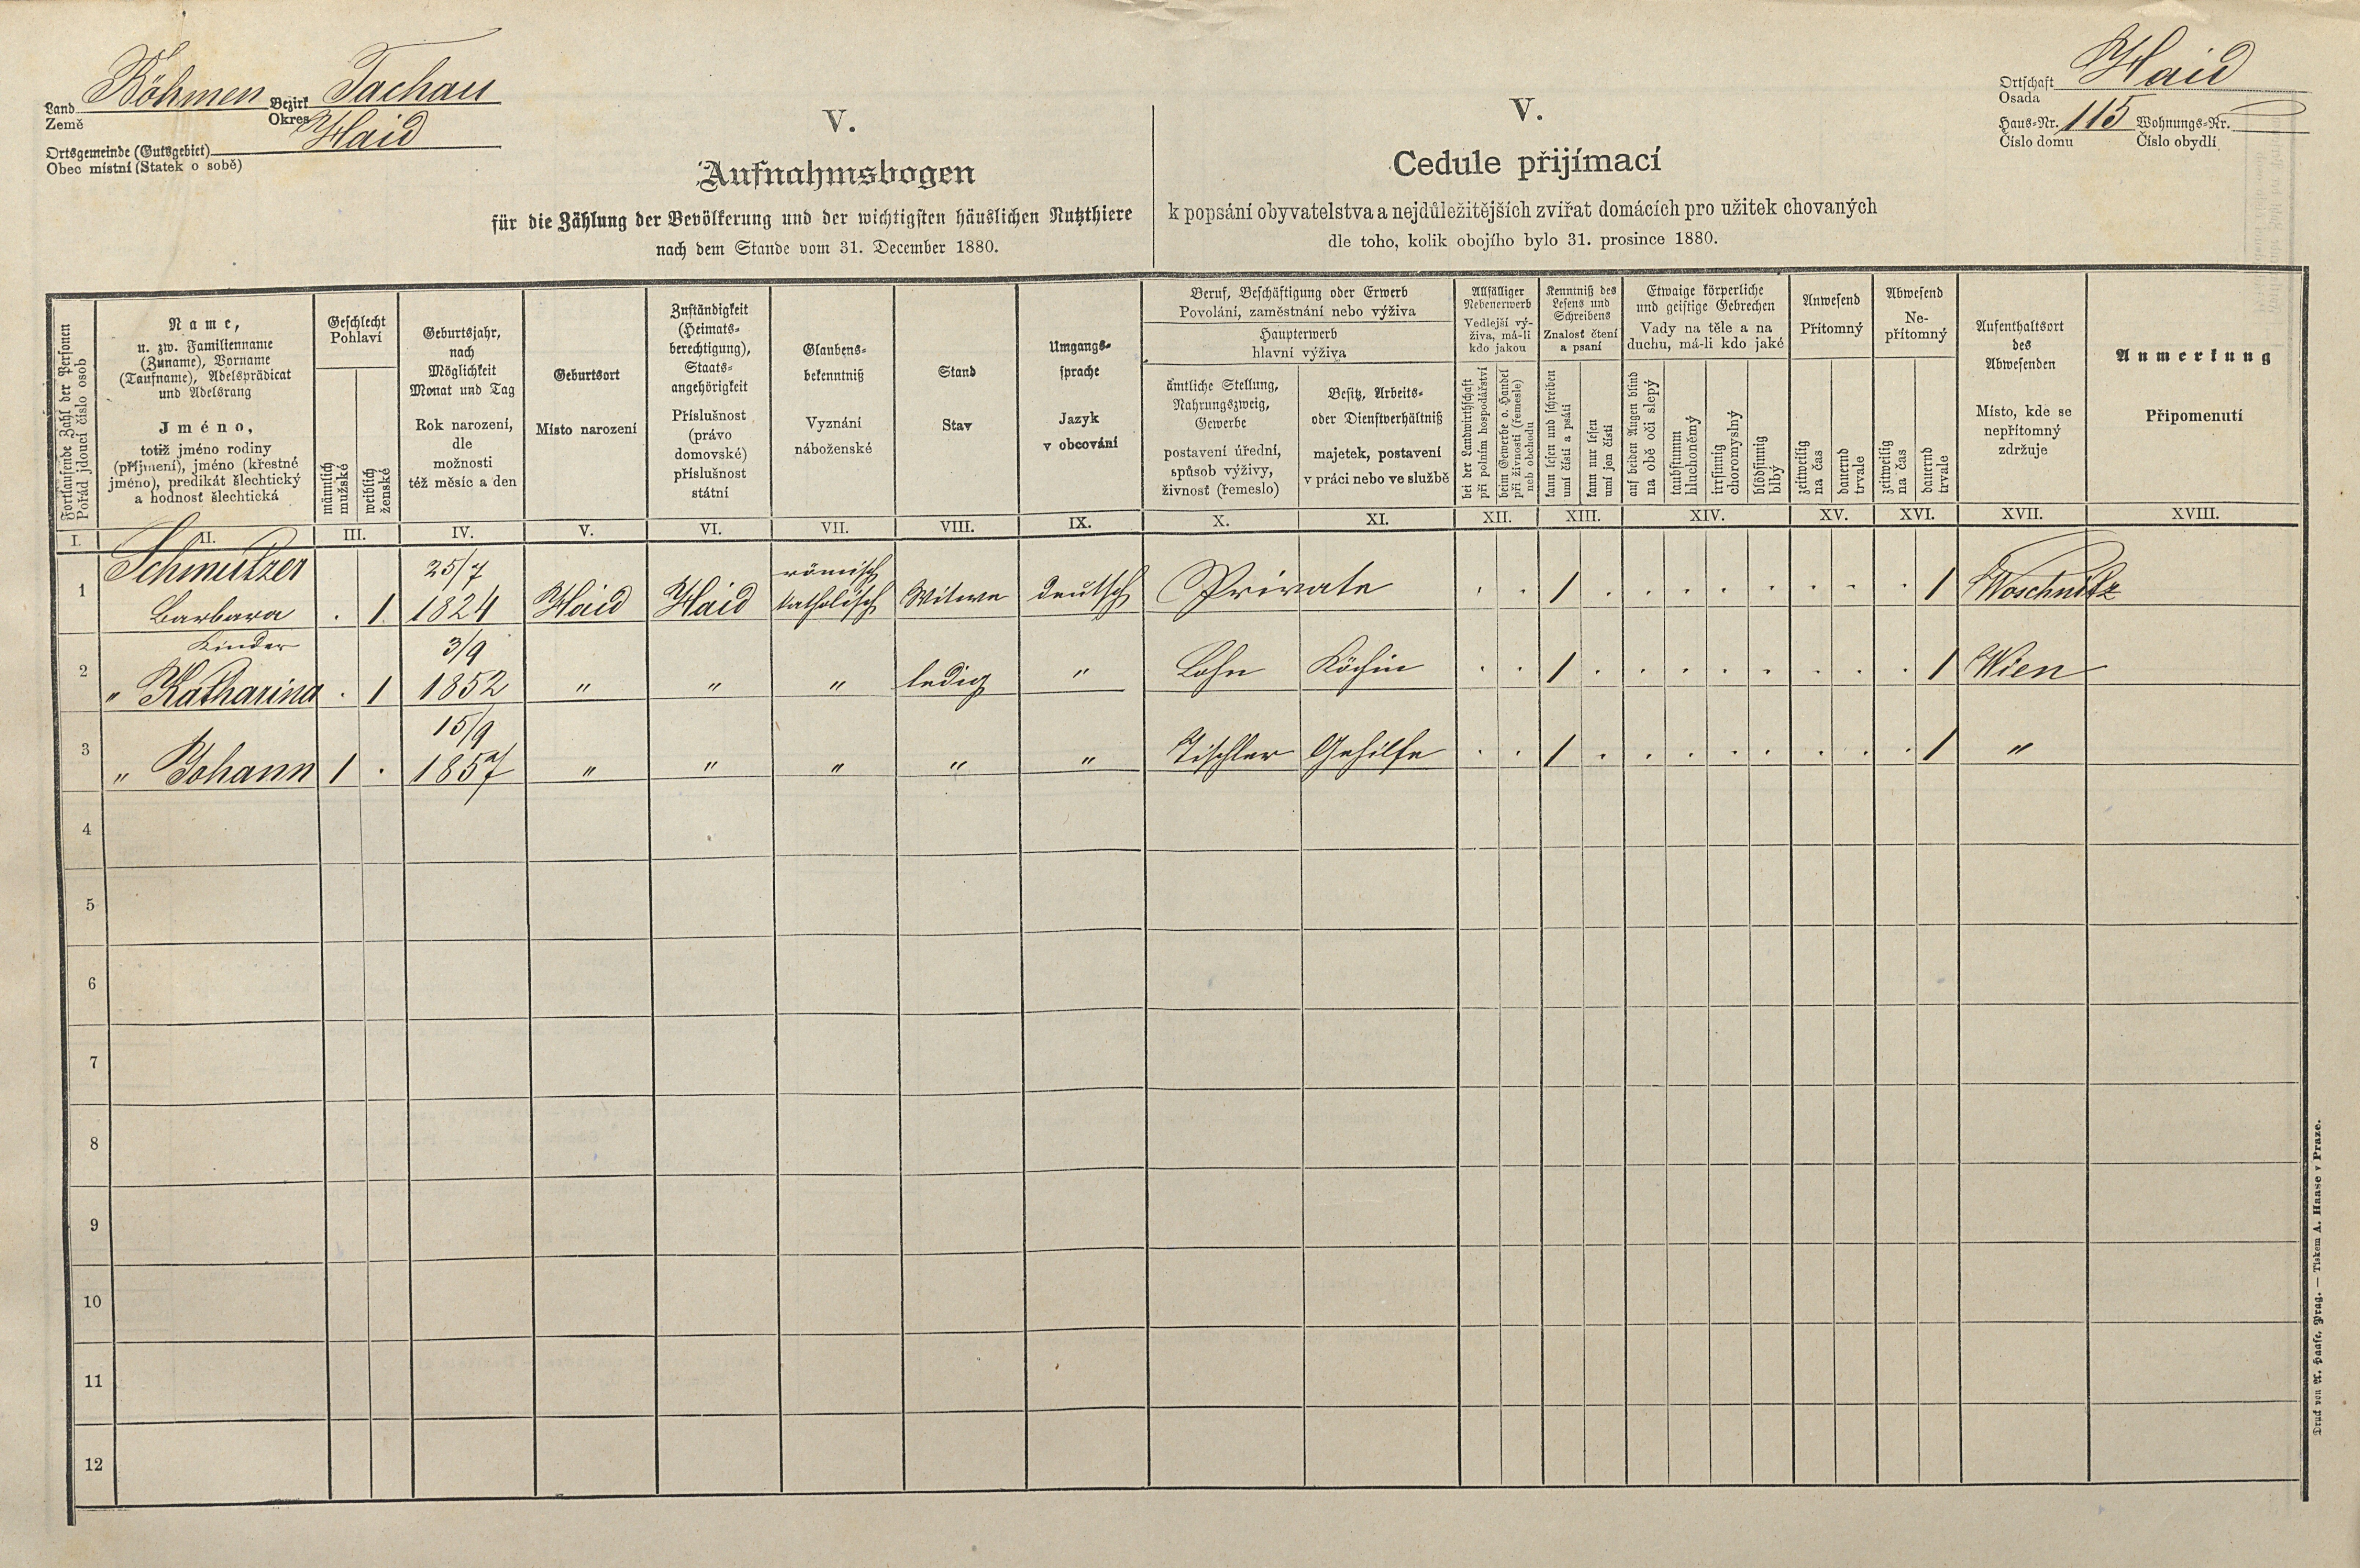 Land Böhmen Bezirk Tachau
Země Okres
Ortsgemeinde (Gutsgebiet) Haid
Obec místní (Statek o sobě)
V.
Aufnahmsbogen
für die Zählung der Bevölkerung und der wichtigsten häuslichen Nutzthiere
nach dem Stande vom 31. December 1880.
V.
Cedule přijímací
k popsání obyvatelstva a nejdůležitějších zvířat domácích pro užitek chovaných
dle toho, kolik obojího bylo 31. prosince 1880.
Ortschaft Haid
Osada
Haus-Nr. 115 Wohnungs-Nr.
Číslo domu Číslo obydlí
Fortlaufende Zahl der Personen
Pořád jdoucí číslo osob
Name,
u. zw. Familienname
(Zuname), Vorname
(Taufname), Adelsprädicat
und Adelsrang
Jméno,
totiž jméno rodiny
(příjmení), jméno (křestné
jméno), predikát šlechtický
a hodnost šlechtická
Geschlecht
Pohlaví
männlich
mužské
weiblich
ženské
Geburtsjahr,
nach
Möglichkeit
Monat und Tag
Rok narození,
dle
možnosti
též měsíc a den
Geburtsort
Místo narození
Zuständigkeit
(Heimats-
berechtigung),
Staats-
angehörigkeit
Příslušnost
(právo
domovské)
příslušnost
státní
Glaubens-
bekenntniß
Vyznání
náboženské
Stand
Stav
Umgangs-
sprache
Jazyk
v obcování
Beruf, Beschäftigung oder Erwerb
Povolání, zaměstnání nebo výživa
Haupterwerb
hlavní výživa
ämtliche Stellung,
Nahrungszweig,
Gewerbe
postavení úřední,
způsob výživy,
živnost (řemeslo)
Besitz, Arbeits-
oder Dienstverhältniß
majetek, postavení
v práci nebo ve službě
Allfälliger
Nebenerwerb
Vedlejší vý-
živa, má-li
kdo jakou
bei der Landwirthschaft
při polním hospodářství
beim Gewerbe o. Handel
při živnosti (řemesle)
neb obchodu
Kenntniß des
Lesens und
Schreibens
Znalost čtení
a psaní
kann lesen und schreiben
umí čísti a psáti
kann nur lesen
umí jen čísti
Etwaige körperliche
und geistige Gebrechen
Vady na těle a na
duchu, má-li kdo jaké
auf beiden Augen blind
na obě oči slepý
taubstumm
hluchoněmý
irrsinnig
choromyslný
blödsinnig
blbý
Anwesend
Přítomný
zeitweilig
na čas
dauernd
trvale
Abwesend
Ne-
přítomný
zeitweilig
na čas
dauernd
trvale
Aufenthaltsort
des
Abwesenden
Místo, kde se
nepřítomný
zdržuje
Anmerkung
Připomenutí
I. II. III. IV. V. VI. VII. VIII. IX. X. XI. XII. XIII. XIV. XV. XVI. XVII. XVIII.
Schmutzer 25/7 römisch
1 Barbara . 1 1824 Haid Haid katholisch Witwe deutsch Private . . 1 . . . . . . . . 1 Woschnitz
Kinder 3/9
2 " Katharina . 1 1852 " " " ledig " Lohn Köchin . . 1 . . . . . . . . 1 Wien
15/9
3 " Johann 1 . 1857 " " " " " Tischler Gehilfe . . 1 . . . . . . . . 1 "
4
5
6
7
8
9
10
11
12
Druck von A. Haase, Prag. — Tiskem A. Haase v Praze.